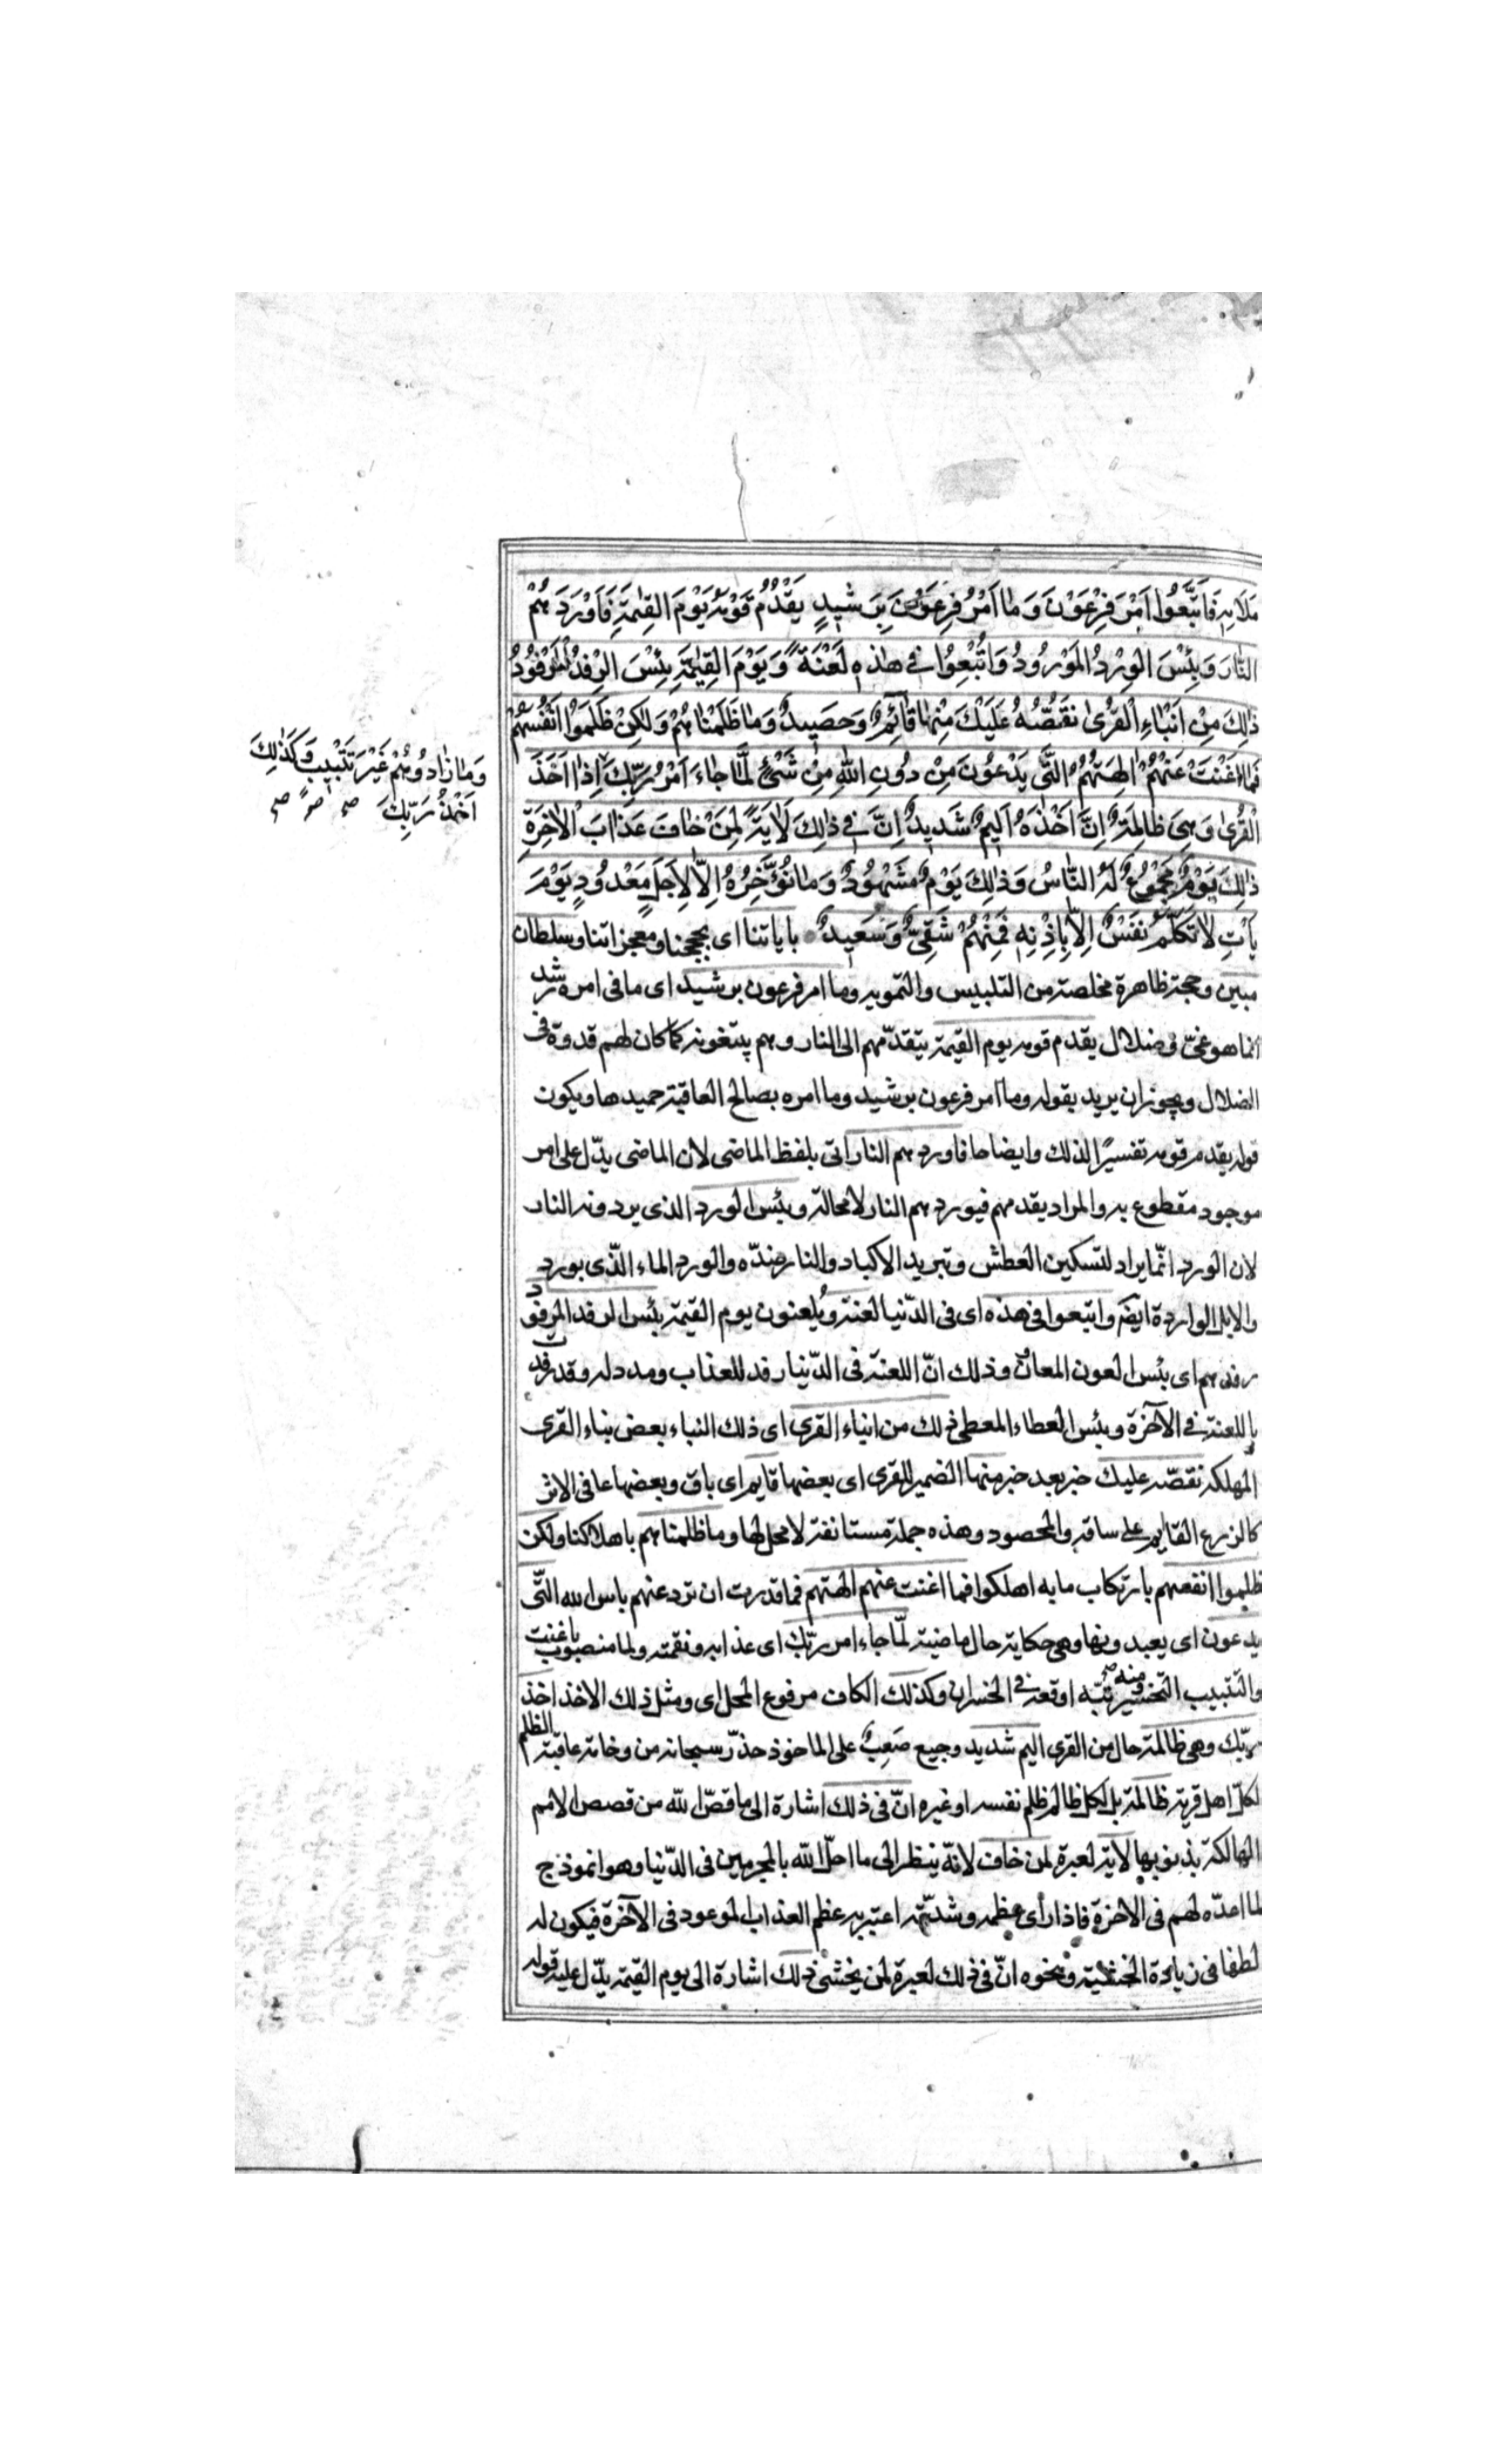 مَلَائِهِ فَاتَّبَعُوا اَمْرَ فِرْعَوْنَ وَمَا اَمْرُ فِرْعَوْنَ بِرَشيدٍ يَقْدُمُ قَوْمَهُ يَوْمَ القِيٰمَةِ فَاَوْرَدَهُمْ
النّارَ وَبِئْسَ الوِرْدُ المَوْرُودُ وَاُتْبِعُوا في هٰذِهِ لَعْنَةً وَيَوْمَ القِيٰمَةِ بِئْسَ الرِفْدُ المَرْفُودُ
ذٰلِكَ مِنْ اَنْبَاءِ القُرٰى نَقُصُّهُ عَلَيْكَ مِنْهَا قَآئِمٌ وَحَصيدٌ وَمَا ظَلَمْنَاهُمْ وَلٰكِنْ ظَلَمُوا اَنْفُسَهُمْ
فَمَا اَغْنَتْ عَنْهُمْ اٰلِهَتُهُمُ الَّتي يَدْعُونَ مِنْ دُونِ اللهِ مِنْ شَيْءٍ لَمَّا جَاءَ اَمْرُ رَبِّكَ اِذَا اَخَذَ
وَمَا زَادُوهُمْ غَيْرَ تَتْبيبٍ وَكَذٰلِكَ
اَخْذُ رَبِّكَ صح صح صح
الْقُرٰى وَهِيَ ظَالِمَةٌ اِنَّ اَخْذَهُ اَليمٌ شَديدٌ اِنَّ في ذٰلِكَ لَاٰيَةً لِمَنْ خَافَ عَذَابَ الْاٰخِرَةِ
ذٰلِكَ يَوْمٌ مَجْمُوعٌ لَهُ النّاسُ وَذٰلِكَ يَوْمٌ مَشْهُودٌ وَمَا نُؤَخِّرُهُ اِلّا لِاَجَلٍ مَعْدُودٍ يَوْمَ
يَأْتِ لَا تَكَلَّمُ نَفْسٌ اِلّا بِاِذْنِهِ فَمِنْهُمْ شَقِيٌّ وَسَعيدٌ باياتنا اى بحججنا ومعجزاتنا وسلطان
مبين وحجة ظاهرة مخلصة من التلبيس والتمويه وما امر فرعون برشيد اى ما فى امره رشد
انما هو غىّ وضلال يقدم قومه يوم القيمة يتقدّمهم الى النار وهم يتبعونه كما كان لهم قدوة فى
الضلال ويجوز ان يريد بقوله وما امر فرعون برشيد وما امره بصالح العاقبة حميدها ويكون
قوله يقدم قومه تفسيرًا لذلك وايضاحا فاوردهم النار اتى بلفظ الماضى لان الماضى يدّل على امر
موجود مقطوع به والمراد يقدمهم فيوردهم النار لا محالة وبئس الورد الذى يردونه النار
لان الورد انّما يراد لتسكين العطش وتبريد الاكباد والنار ضدّه والورد الماء الّذى يورد
والابل الواردة ايضً واتبعوا فى هذه اى فى الدّنيا لعنة ويُلعنون يوم القيمة بئس الرفد المرفود
رفدهم اى بئس العون المعان وذلك انّ اللعنة فى الدّنيا رفد للعذاب ومدد له وقد رفدت
باللعنة فى الآخرة وبئس العطاء المعطى ذلك من انباء القرى اى ذلك النباء بعض انباء القرى
المهلكه نقصّه عليك خبر بعد خبر منها الضمير للقرى اى بعضها قايم اى باق وبعضها عافى الاثر
كالزرع القايم على ساقه والمحصود وهذه جملة مستانفة لا محل لها وما ظلمناهم باهلاكنا ولكن
ظلموا انفسهم بارتكاب ما به اهلكوا فما اغنت عنهم الهتهم فما قدرت ان ترد عنهم باس الله الّتى
يدعون اى يعبدونها وهى حكاية حال ماضية لمّا جاء امر ربّك اى عذابه ونقمته ولما منصوب باغنت
والتتبيب التخسير ومنه تبّبه اوقعه فى الخسران وكذلك الكاف مرفوع المحل اى ومثل ذلك الاخذ اخذ
ربّك وهى ظالمة حال من القرى اليم شديد وجيع صَعِبٌ على الماخوذ حذّر سبحانه من وخامة عاقبة الظلم
لكلّ اهل قرية ظالمة بل لكل ظالم ظلم نفسه او غيره انّ فى ذلك اشارة الى ما قصّ الله من قصص الامم
الهالكة بذنوبها لاية لعبرة لمن خاف لانّه ينظر الى ما احلّ الله بالمجرمين فى الدّنيا وهو انموذج
لما اعدّه لهم فى الاخرة فاذا رأى عظمه وشدّته اعتبر به عظم العذاب الموعود فى الآخرة فيكون له
لطفا فى زيادة الخشية ونحوه انّ فى ذلك لعبرة لمن يخشى ذلك اشارة الى يوم القيمة يدّل عليه قوله